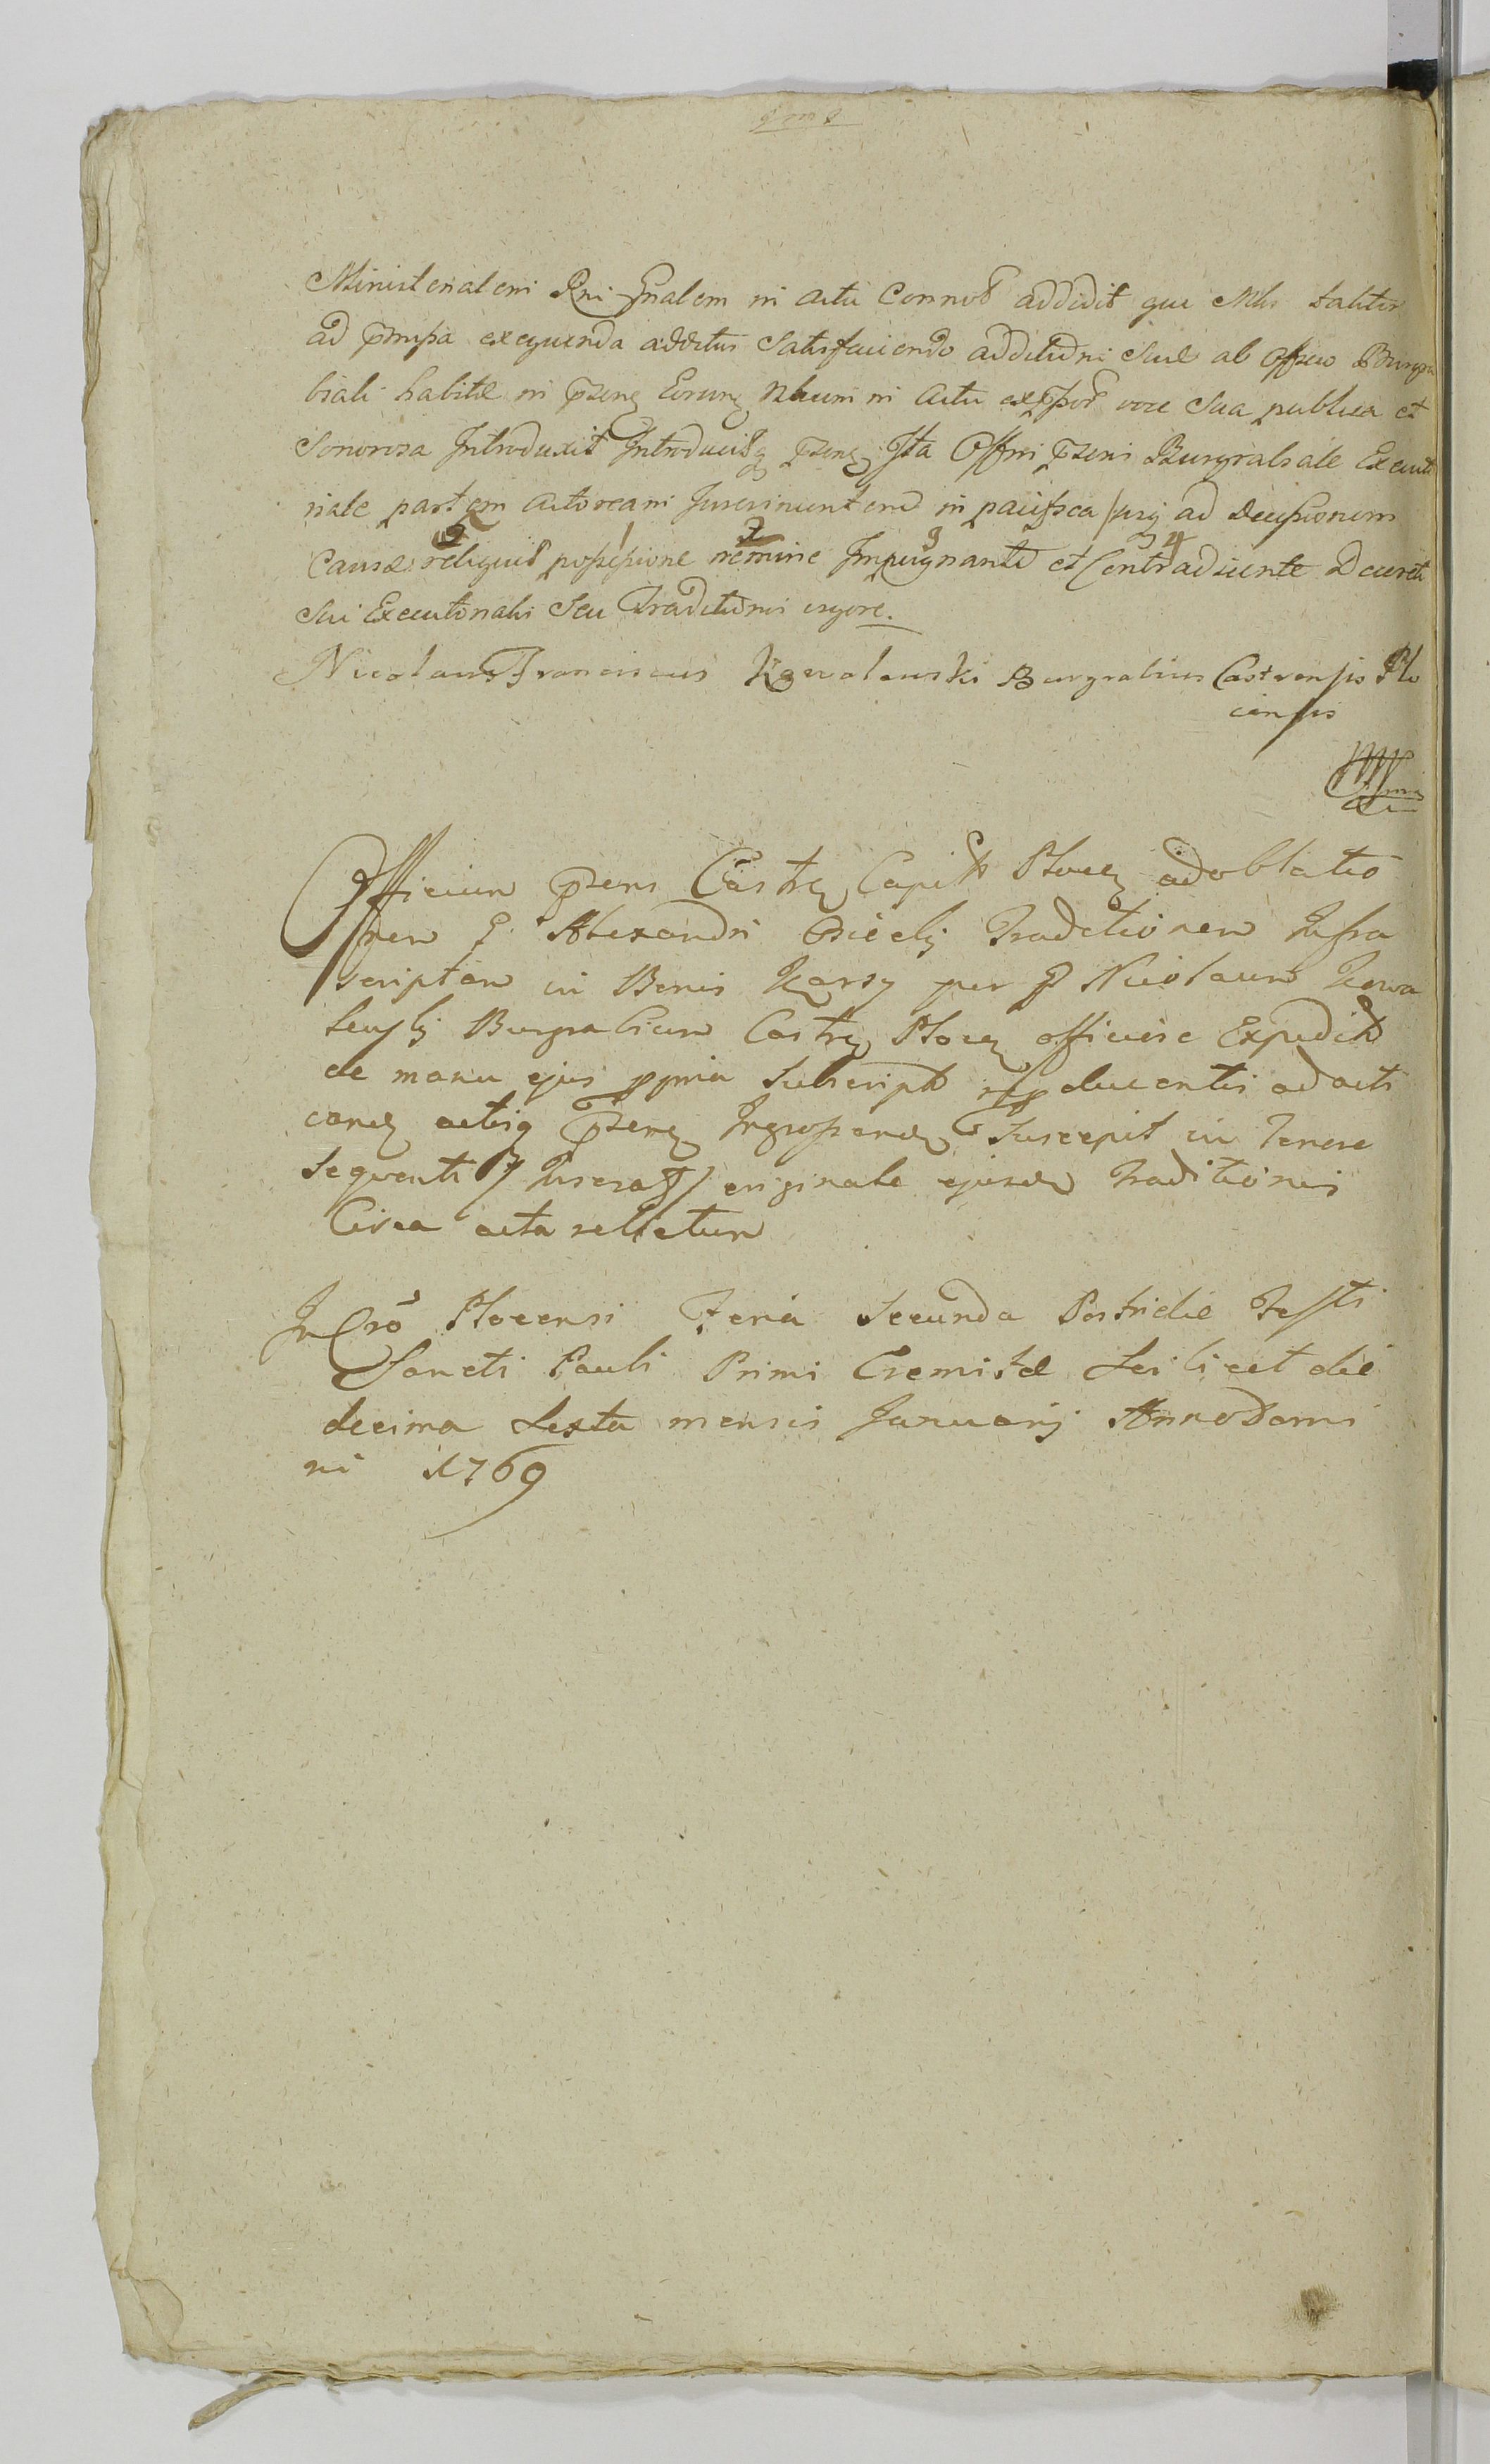 Ministerialem Rni Gnalem in actu Connot addidit qui Mlis taliter
ad pmissa exequenda additus Satisfaciendo additioni Suæ ab Officio Burgra
biali habitæ in pzenq Eorunq Nblium in Actu expssor voce Sua publica et
Sonorosa Introduxit Introducitq pzenq Ita Offm pzens Burgrabiale Executo
riale partem Actoream in pacifica usq ad Decisionem
Causæ reliquit possessione nemine Impugnante et Contradicente Decreti
Sui Executorialis Seu Traditionis vigore.
Nicolaus Franciscus Kowalewski Burgrabius Castrensis Plo
censis
Officium pzens Castrq Capitlis Plocq ad oblatio
nem g Alexandri Traditionem Infra
scriptam in Bonis Karsy per g Nicolaum Kowa
lewskj Burgrabium Castrq Plocq officiose Expedit
de manu ejus ppria Subscript ducentis ad acti
candq actisq pzenq Ingrossandq Suscepit in Tenore
Sequenti / Inserat / originale ejusdem Traditionis
Circa acta relictum
In Cro Plocensi Feria Secunda Postridie Festi
Sancti Pauli Primi Eremitæ Scilicet die
decima Sexta mensis Januarij Anno Domi
ni 1769